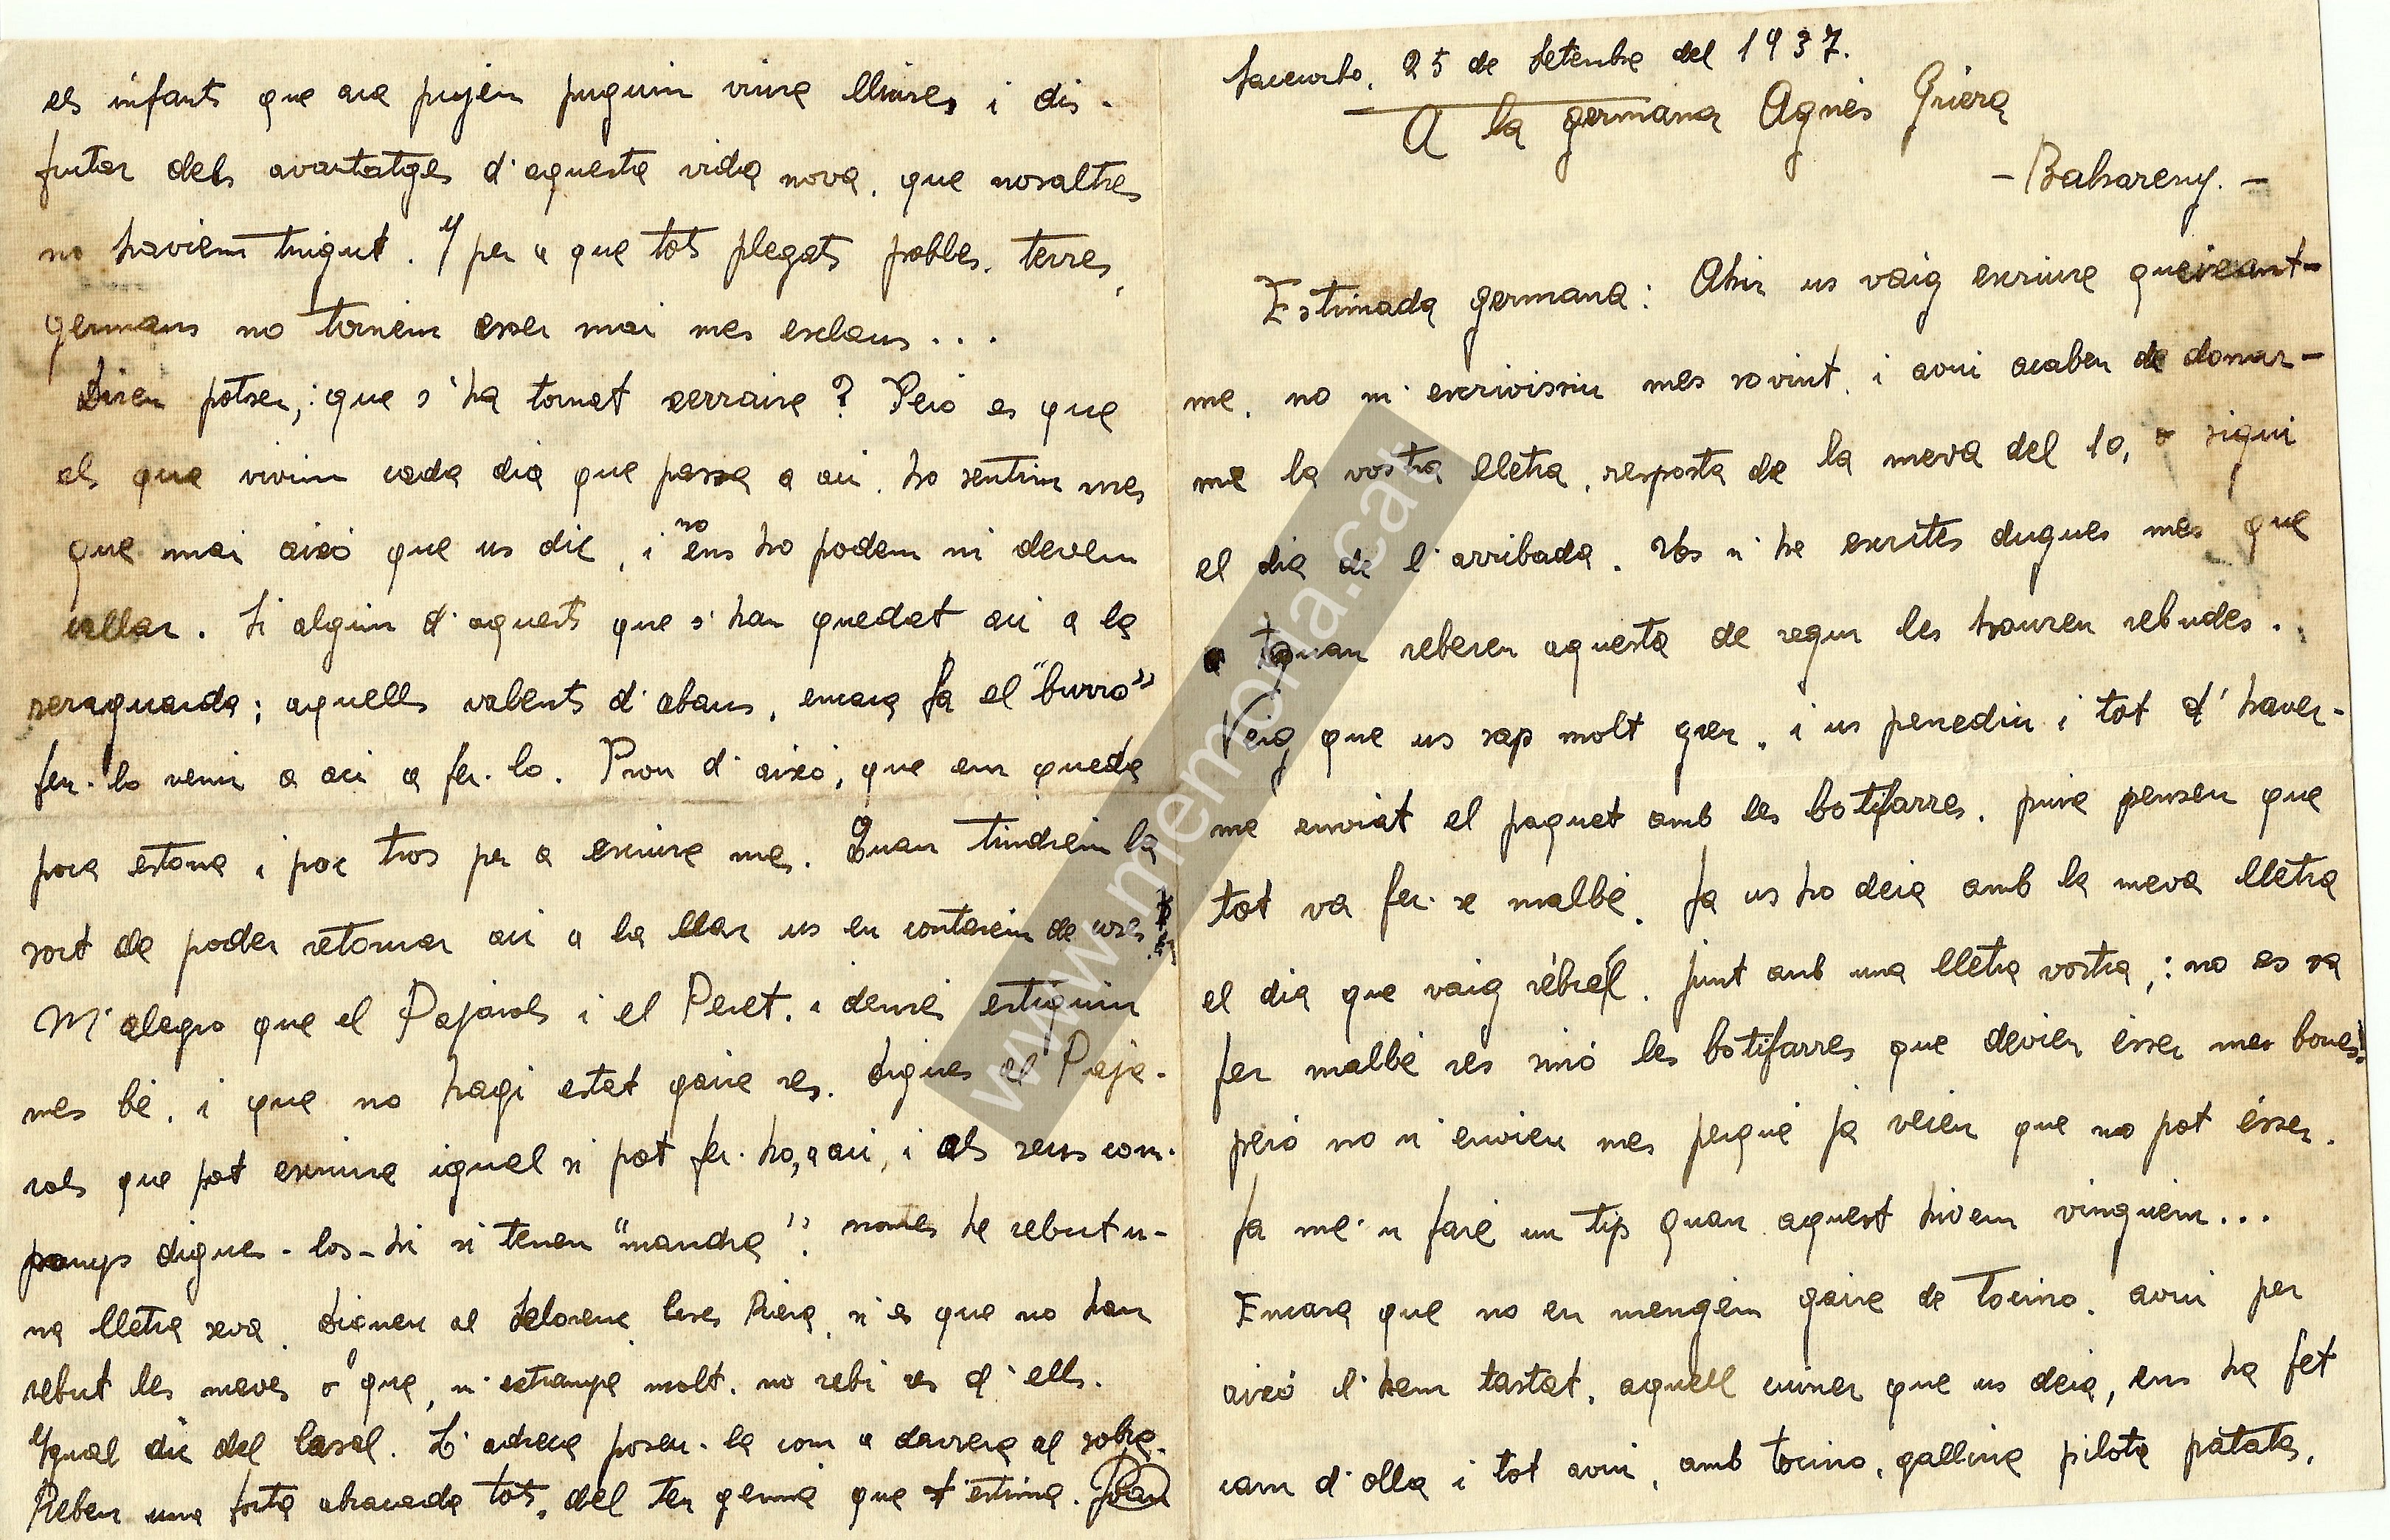 25 de Setembre del 1937.
A la germana Agnès Griera
- Balsareny. -
Estimada germana: Ahir us vaig escriure queixant-
me, no m'escrivissiu mes sovint, i avui acaben de donar-
me la vostra lletra, resposta de la meva del 10, o sigui
el dia de l'arribada. Vos n'he escrites dugues mes que
quan rebereu aquesta de segur les haureu rebudes.
Veig que us sap molt greu, i us penediu i tot d'haver-
me enviat el paquet amb les botifarres, puix penseu que
tot va fer-se malbé. Ja us ho deia amb la meva lletra
el dia que vaig rebre'l. Junt amb una lletra vostra,; no es va
fer malbé res sinó les botifarres que devien ésser mes bones!
peró no n'envieu mes perqué ja veieu que no pot ésser.
Ja me'n faré un tip quan aquest hivern vinguem...
Encara que no en mengem gaire de tocino, avui per
aixó l'hem tastat, aquell cuiner que us deia, ens ha fet
carn d'olla i tot avui, amb tocino, gallina pilota patata,
els infants que ara pujen puguin viure lliures i dis-
frutar dels avantatges d'aquesta vida nova, que nosaltres
no haviem tingut. Y per a que tots plegats pobles, terres,
germans no tornem esser mai mes esclaus...
Direu potser,: que s'ha tornat xerraire? Peró es que
els que vivim cada dia que passa a aci, ho sentim mes
que mai aixó que us dic, i no ens ho podem ni devem
callar. Si algun d'aquests que s'han quedat aci a la
reraguarda; aquells valents d'abans, encara fa el "burro"
feu-lo venir a aci a fer-lo. Prou d'aixó, que em queda
poca estona i poc tros per a escriure mes. Quan tindrem la
sort de poder retornar aci a la llar us en contarem de coses
M'alegro que el Pajarols i el Peret, i demés estiguin
mes bé, i que no hagi estat gaire res. Digues al Paja-
rols que pot escriure igual si pot fer-ho, a aci, i als seus com-
panys digues-los-hi si tenen "mandra"? només he rebut u-
na lletra seva. Digueu al Riera, si es que no han
rebut les meves o que, m'estranya molt, no rebi res d'ells.
Ygual dic del Casal. L'adreça poseu-la com a darrera al sobre.
Rebeu una forta abraçada tots, del teu germà que t'estima. Joan
www.memoria.cat